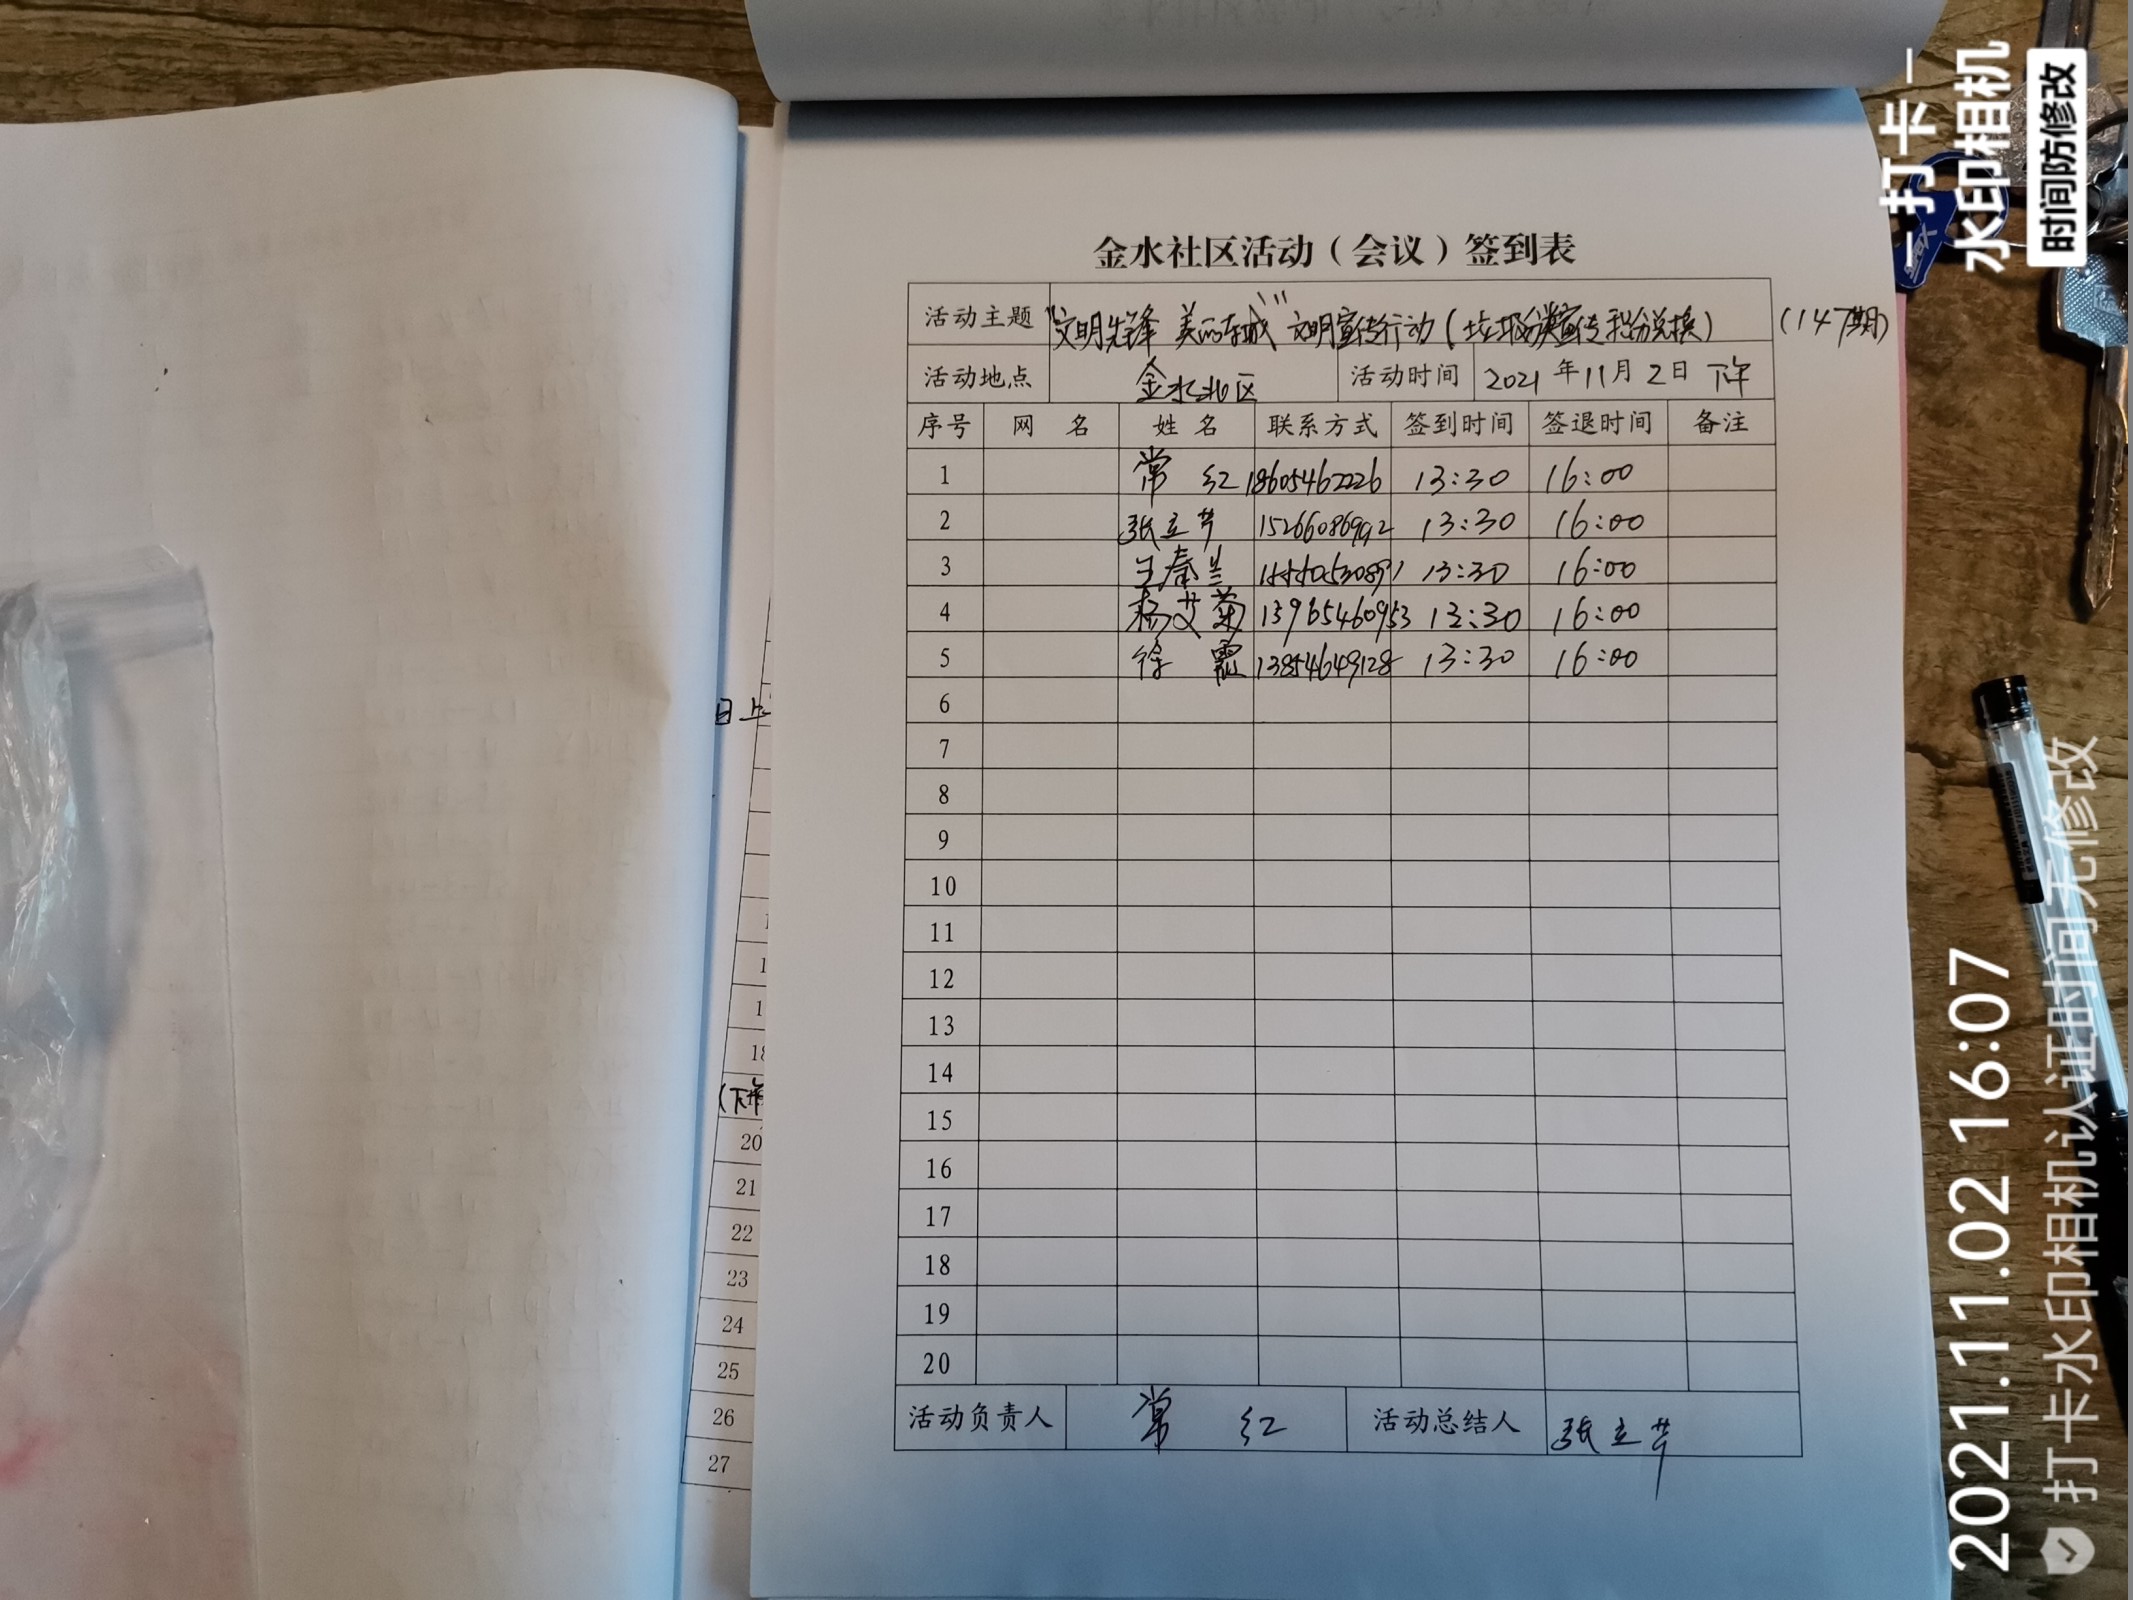 金水社区活动（会议）签到表
活动主题 "文明先锋 美丽东城" 文明宣传行动(垃圾分类宣传积分兑换) (147期)
活动地点 金水北区 活动时间 2021年11月2日 下午
序号 网 名 姓 名 联系方式 签到时间 签退时间 备注
1 常 红 18605462226 13:30 16:00
2 张立芹 15266086992 13:30 16:00
3 王秦兰 13:30 16:00
4 杨艾菊 13965460953 13:30 16:00
5 徐 霞 13854649128 13:30 16:00
6
7
8
9
10
11
12
13
14
15
16
17
18
19
20
活动负责人 常 红 活动总结人 张立芹
日上
18
(下午
20
21
22
23
24
25
26
27
打卡
水印相机
时间防修改
2021.11.02 16:07
打卡水印相机认证时间无修改